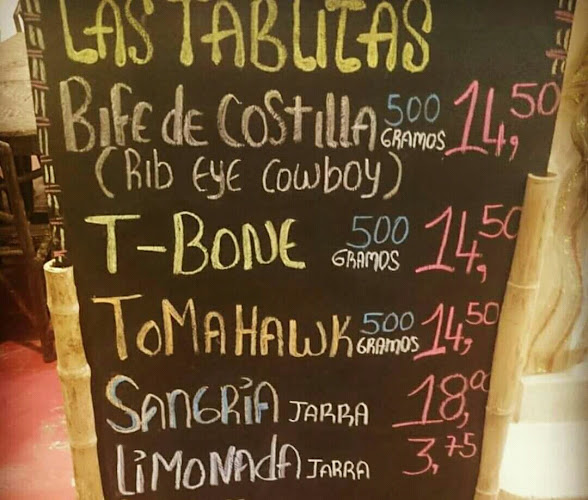 LAS TABLITAS
BIFE de COSTILLA 500 GRAMOS 14,50
(RIB EYE COWBOY)
T-BONE 500 GRAMOS 14,50
TOMAHAWK 500 GRAMOS 14,50
SANGRÍA JARRA 18,00
LIMONADA JARRA 3,75